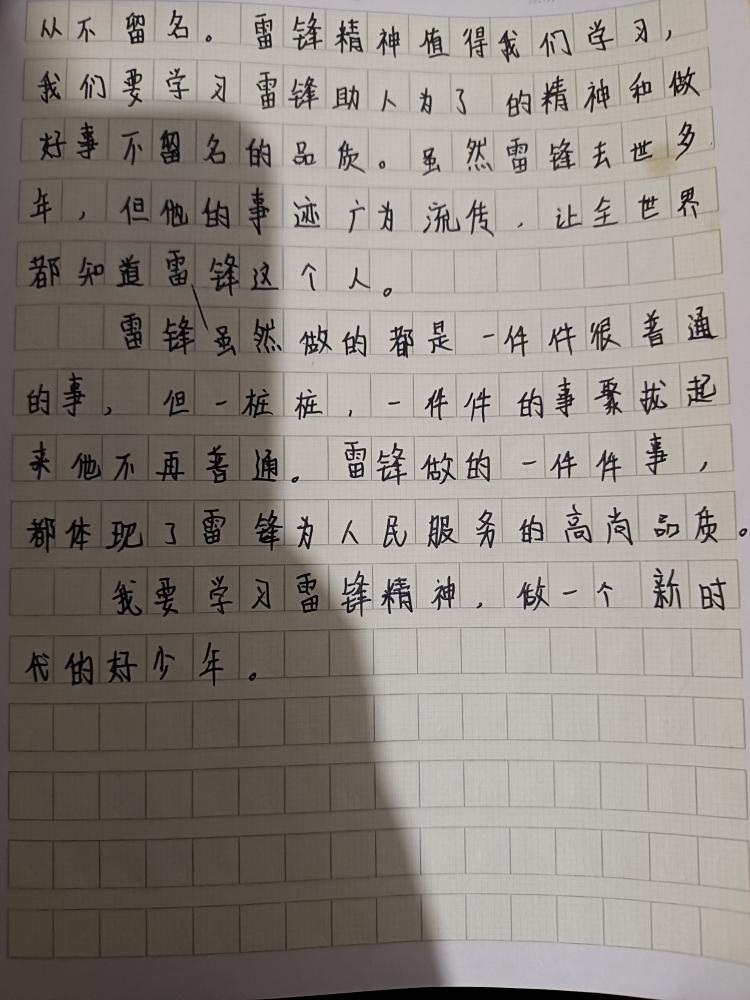 从不留名。雷锋精神值得我们学习，
我们要学习雷锋助人为了的精神和做
好事不留名的品质。虽然雷锋去世多
年，但他的事迹广为流传，让全世界
都知道雷锋这个人。
雷锋虽然做的都是一件件很普通
的事，但一桩桩，一件件的事聚拢起
来他不再普通。雷锋做的一件件事，
都体现了雷锋为人民服务的高尚品质。
我要学习雷锋精神，做一个新时
代的好少年。